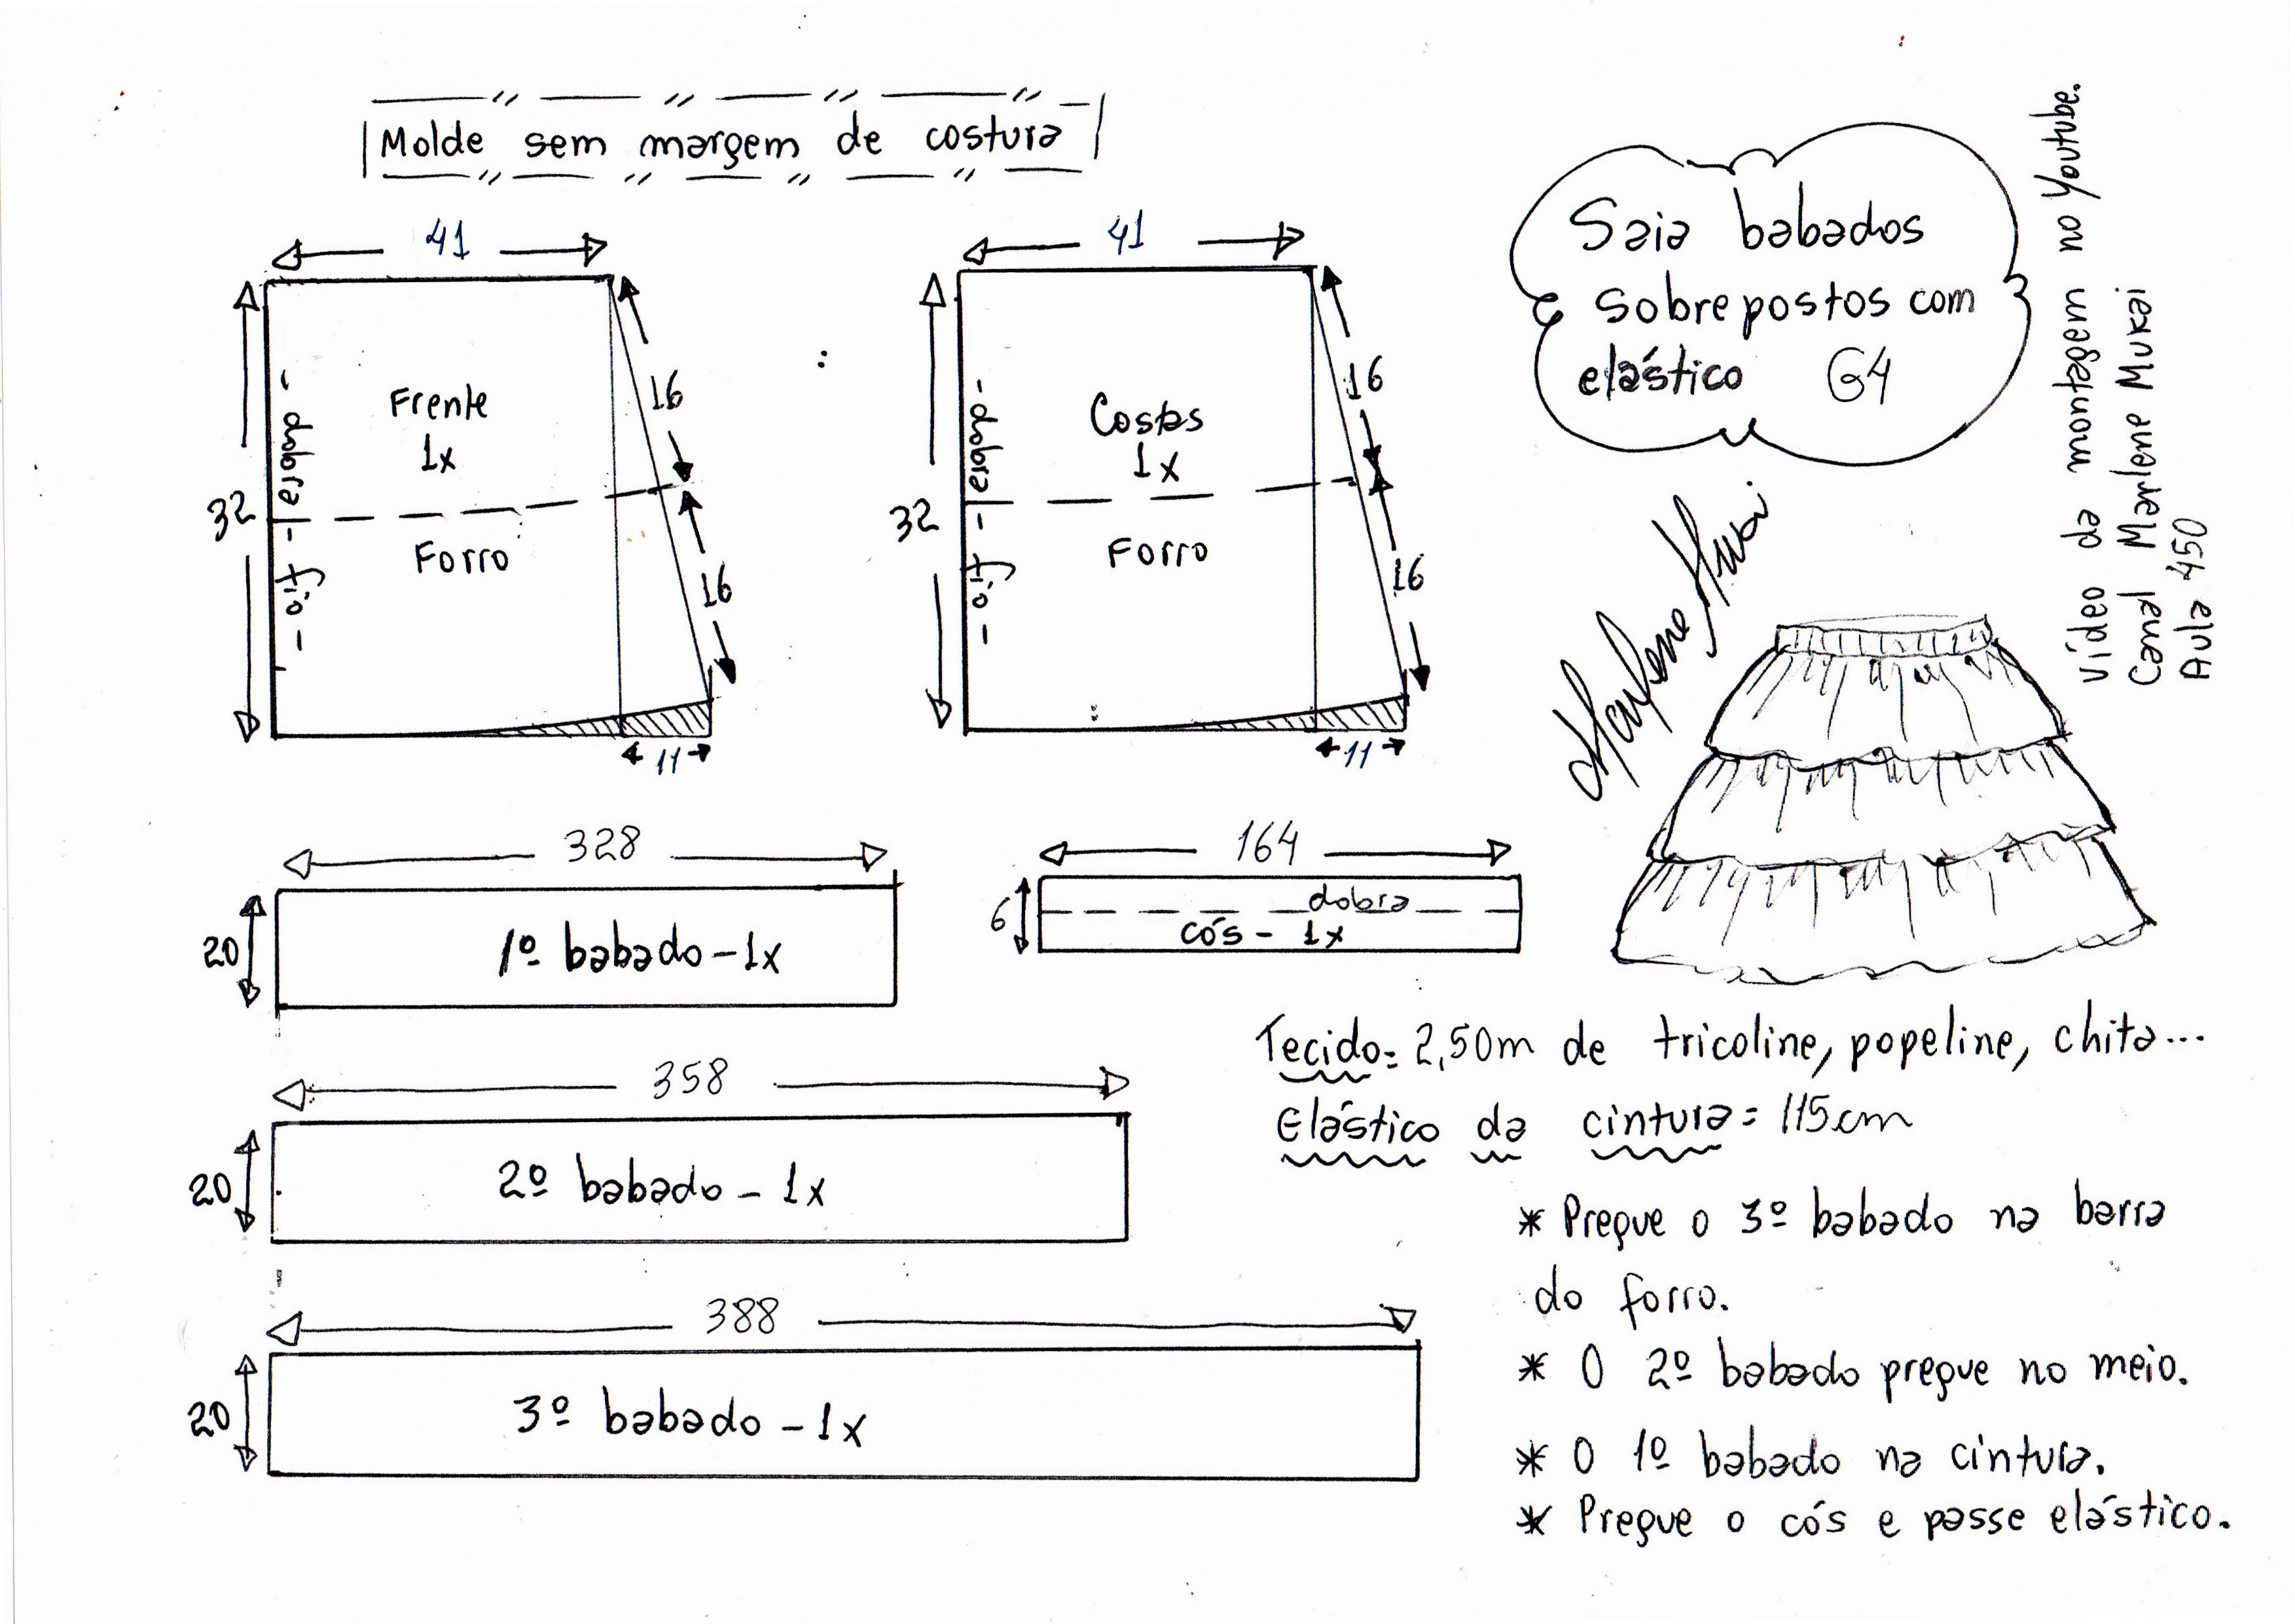 Molde sem margem de costura
41
32
- dobra - fio -
Frente
1x
Forro
16
16
11
41
32
- dobra - fio -
Costas
1x
Forro
16
16
11
Saia babados
sobrepostos com
elástico G4
vídeo da montagem no Youtube.
Canal Marlene Mukai
Aula 450
Marlene Mukai
328
20
1º babado - 1x
164
6
dobra
cós - 1x
358
20
2º babado - 1x
388
20
3º babado - 1x
Tecido= 2,50m de tricoline, popeline, chita...
Elástico da cintura= 115cm
* Pregue o 3º babado na barra
do forro.
* O 2º babado pregue no meio.
* O 1º babado na cintura.
* Pregue o cós e passe elástico.